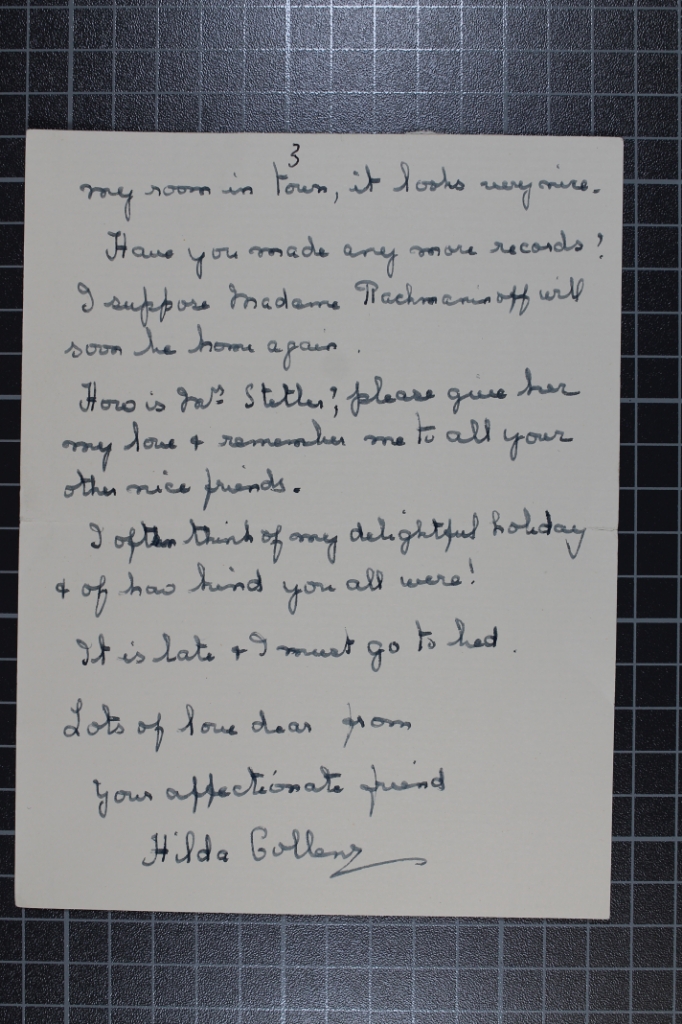 3
my room in town, it looks very nice.
Have you made any more records?
I suppose Madame Rachmaninoff will
soon be home again.
How is Mrs. Stetler?, please give her
my love & remember me to all your
other nice friends.
I often think of my delightful holiday
& of how kind you all were!
It is late & I must go to bed.
Lots of love dear from
Your affectionate friend
Hilda Collens